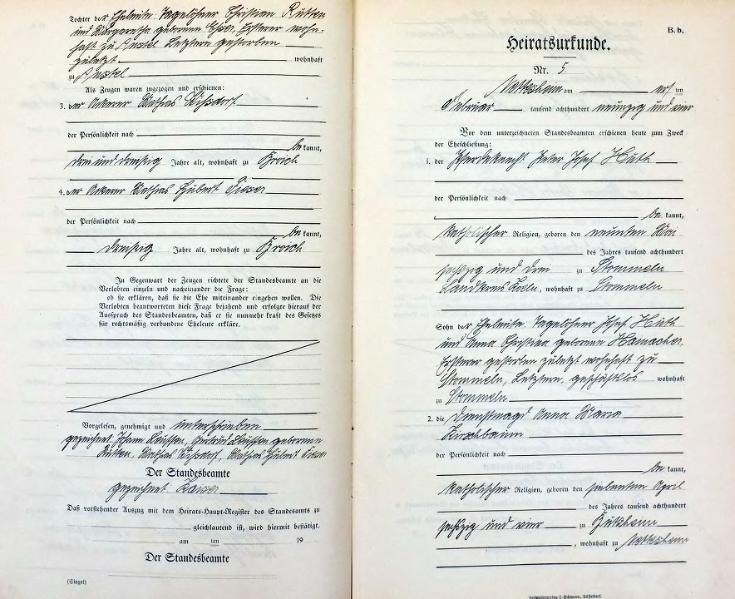 Tochter der Eheleute: Tagelöhner Christian Rütten
und Margaretha geborene Esser, Ersterer wohn-
haft zu Anstel Letztere gestorben
zuletzt wohnhaft
zu Anstel
Als Zeugen waren zugezogen und erschienen:
3. der Ackerer Mathias
der Persönlichkeit nach
be kannt,
drei und dreißig Jahre alt, wohnhaft zu Broich
4. der Ackerer Mathias Hubert
der Persönlichkeit nach
be kannt,
dreißig Jahre alt, wohnhaft zu Broich
In Gegenwart der Zeugen richtete der Standesbeamte an die
Verlobten einzeln und nacheinander die Frage:
ob sie erklären, daß sie die Ehe miteinander eingehen wollen. Die
Verlobten beantworteten diese Frage bejahend und erfolgte hierauf der
Ausspruch des Standesbeamten, daß er sie nunmehr kraft des Gesetzes
für rechtmäßig verbundene Eheleute erkläre.
Vorgelesen, genehmigt und unterschrieben
gezeichnet Johann geborene
Rütten, Mathias Mathias Hubert
Der Standesbeamte
gezeichnet Kaiser
Daß vorstehender Auszug mit dem Heirats-Haupt-Register des Standesamts zu
gleichlautend ist, wird hiermit bestätigt.
am ten 19
Der Standesbeamte
(Siegel)
B. b.
Heiratsurkunde.
Nr. 5
Nettesheim am ten
Februar tausend achthundert neunzig und vier
Vor dem unterzeichneten Standesbeamten erschienen heute zum Zweck
der Eheschließung:
1. der Pferdeknecht Peter Josef Huth
der Persönlichkeit nach
be kannt,
katholischer Religion, geboren den neunten Mai
des Jahres tausend achthundert
sechzig und drei zu Stommeln
Landkreis Koeln, wohnhaft zu Stommeln
Sohn der Eheleute Tagelöhner Josef Huth
und Anna Christina geborenen Hamacher
Ersterer gestorben zuletzt wohnhaft zu
Stommeln, Letztere, geschäftslos wohnhaft
zu Stommeln
2. die Dienstmagd Anna Maria
Kirschbaum
der Persönlichkeit nach
be kannt,
katholischer Religion, geboren den siebenten April
des Jahres tausend achthundert
sechzig und vier zu Butzheim
, wohnhaft zu Nettesheim